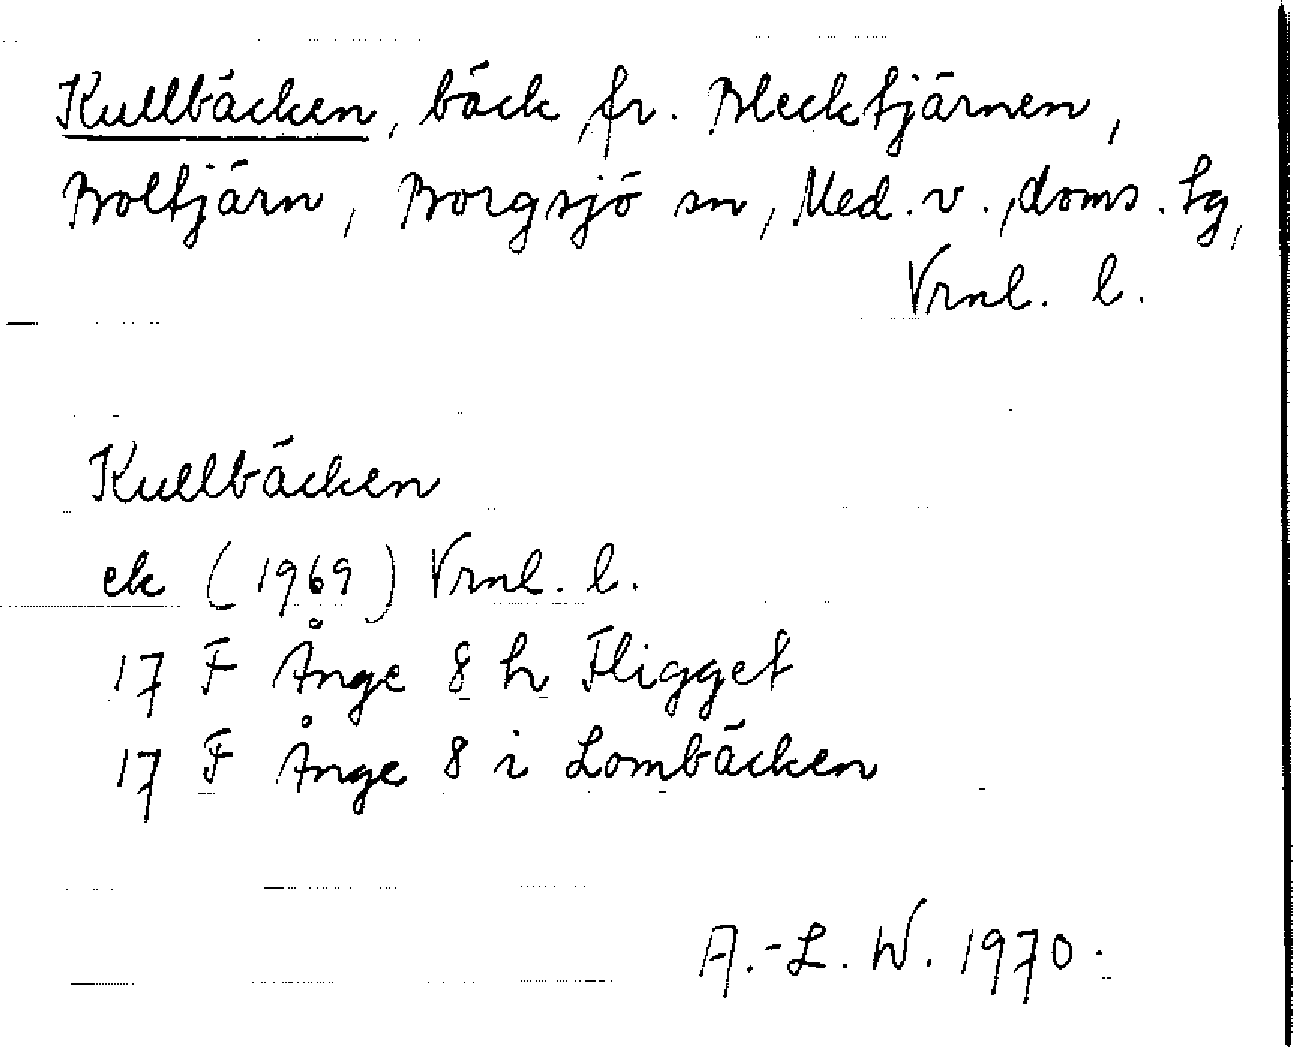 Kullbäcken, bäck fr. Blecktjärnen,
Boltjärn, Borgsjö sn, Med. v., doms. tg,
Vrnl. l.
Kullbäcken
ek (1969) Vrnl. l.
17 F Ånge 8 h Fligget
17 F Ånge 8 i Lombäcken
A.-L. W. 1970.